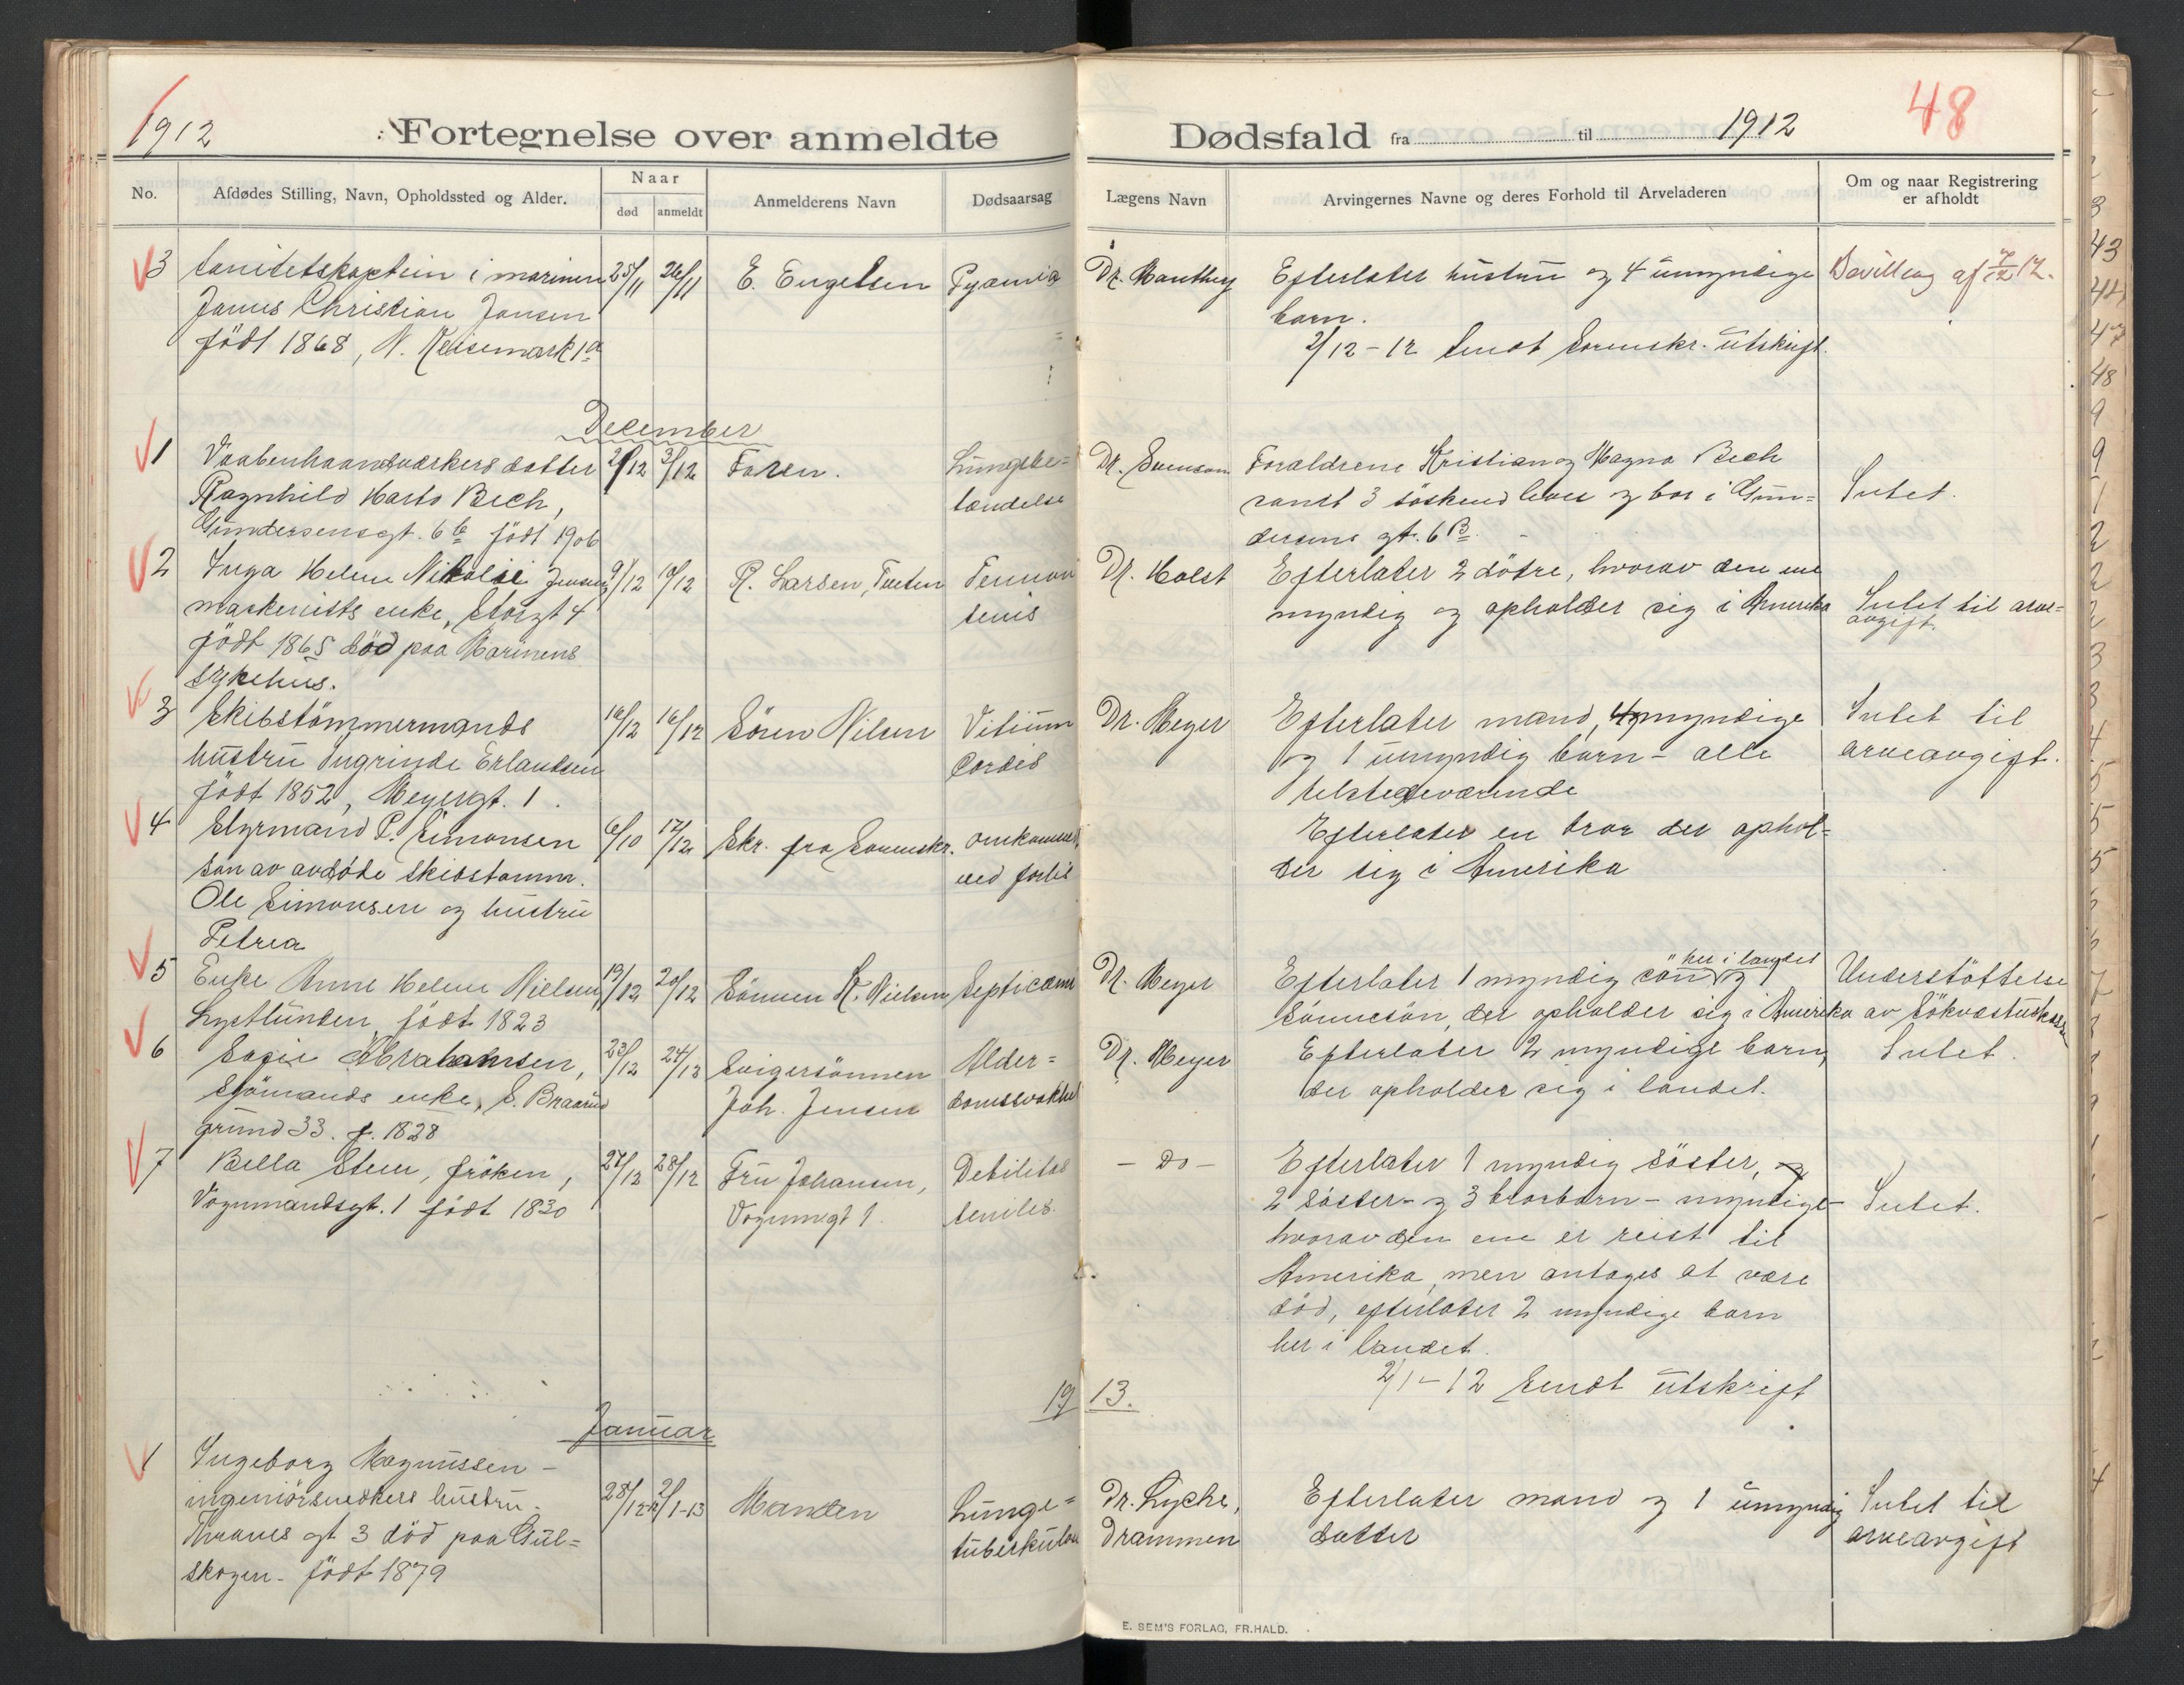 1912
Fortegnelse over anmeldte
Dødsfald fra til 1912
48
No.
Afdødes Stilling, Navn, Opholdssted og Alder.
Naar
død
anmeldt
Anmelderens Navn
Dødsaarsag
Lægens Navn
Arvingernes Navne og deres Forhold til Arveladeren
Om og naar Registrering
er afholdt
3 Sanitetskaptein i marinen 25/11 26/11 E. Engelsen Pyæmia Dr. Efterlater hustru og 4 umyndige Bevilling af 7/12 12.
Christian Jansen barn.
født 1868, N. 2/12-12 Sendt Sorenskr. utskrift.
December
1 Vaabenhaandverkers datter 2/12 3/12 Faren. Lungebe= Dr. Svenson Forældrene Kristian og Magna Bech
Ragnhild Bech, tændelse samt 3 søskend lever og bor i Gun= Intet.
Gundersensgt. 6 b født 1906 dersens gt. 6 B
2 Inga Helene Nikolie Jensen, 9/12 10/12 R. Larsen, Dr. Holst Efterlater 2 døtre, hvorav den ene
maskinists enke, Storgt 4 myndig og opholder sig i Amerika Intet til arve=
avgift.
født 1865 død paa Marinens
sykehus.
3 Skibstømmermands 16/12 16/12 Søren Nilsen Vitium Dr. Meyer Efterlater mand, 4 myndige Intet til
hustru Ingrinde Erlandsen cordis og 1 umyndig barn - alle arveavgift.
født 1852, Meyergt. 1. tilstedeværende
4 Styrmand P. Simonsen 6/10 17/12 Skr. fra Sorenskr. omkommet Efterlater en bror der ophol=
søn av avdøde skibstømm. ved forlis der sig i Amerika
Ole Simonsen og hustru
Petrea
her i landet
5 Enke Anne Helene Nielsen, 19/12 20/12 Sønnen K. Nielsen Septicæmi Dr. Meyer Efterlater 1 myndig søn og 1 Understøttelse
Lystlunden, født 1823 sønnesøn, der opholder sig i Amerika av
6 Abrahamsen, 23/12 24/12 Svigersønnen Alder= Dr. Meyer Efterlater 2 myndige barn, Intet.
Sjømands enke, S. Braarud Joh. Jensen domssvakhet der opholder sig i landet.
grund 33. f. 1828
7 Bella Steen, frøken, 27/12 28/12 Fru Johansen, Debilitas - Do - Efterlater 1 myndig søster, og
Vognmandsgt. 1 født 1830 Vognmgt 1. senilis. 2 søster- og 3 brorbarn - myndige - Intet.
hvorav den ene er reist til
Amerika, men antages at være
død, efterlater 2 myndige barn
her i landet.
2/1-12 Sendt utskrift
19 13.
Januar
1 Ingeborg Magnussen -
ingeniørsnedkers hustru. 28/12-12 2/1-13 Manden Lunge= Dr. Lyche, Efterlater mand og 1 umyndig Intet til
Thranes gt 3 død paa Gul= tuberkulose Drammen datter arveavgift
skogen - født 1879
E. SEM'S FORLAG, FR.HALD.